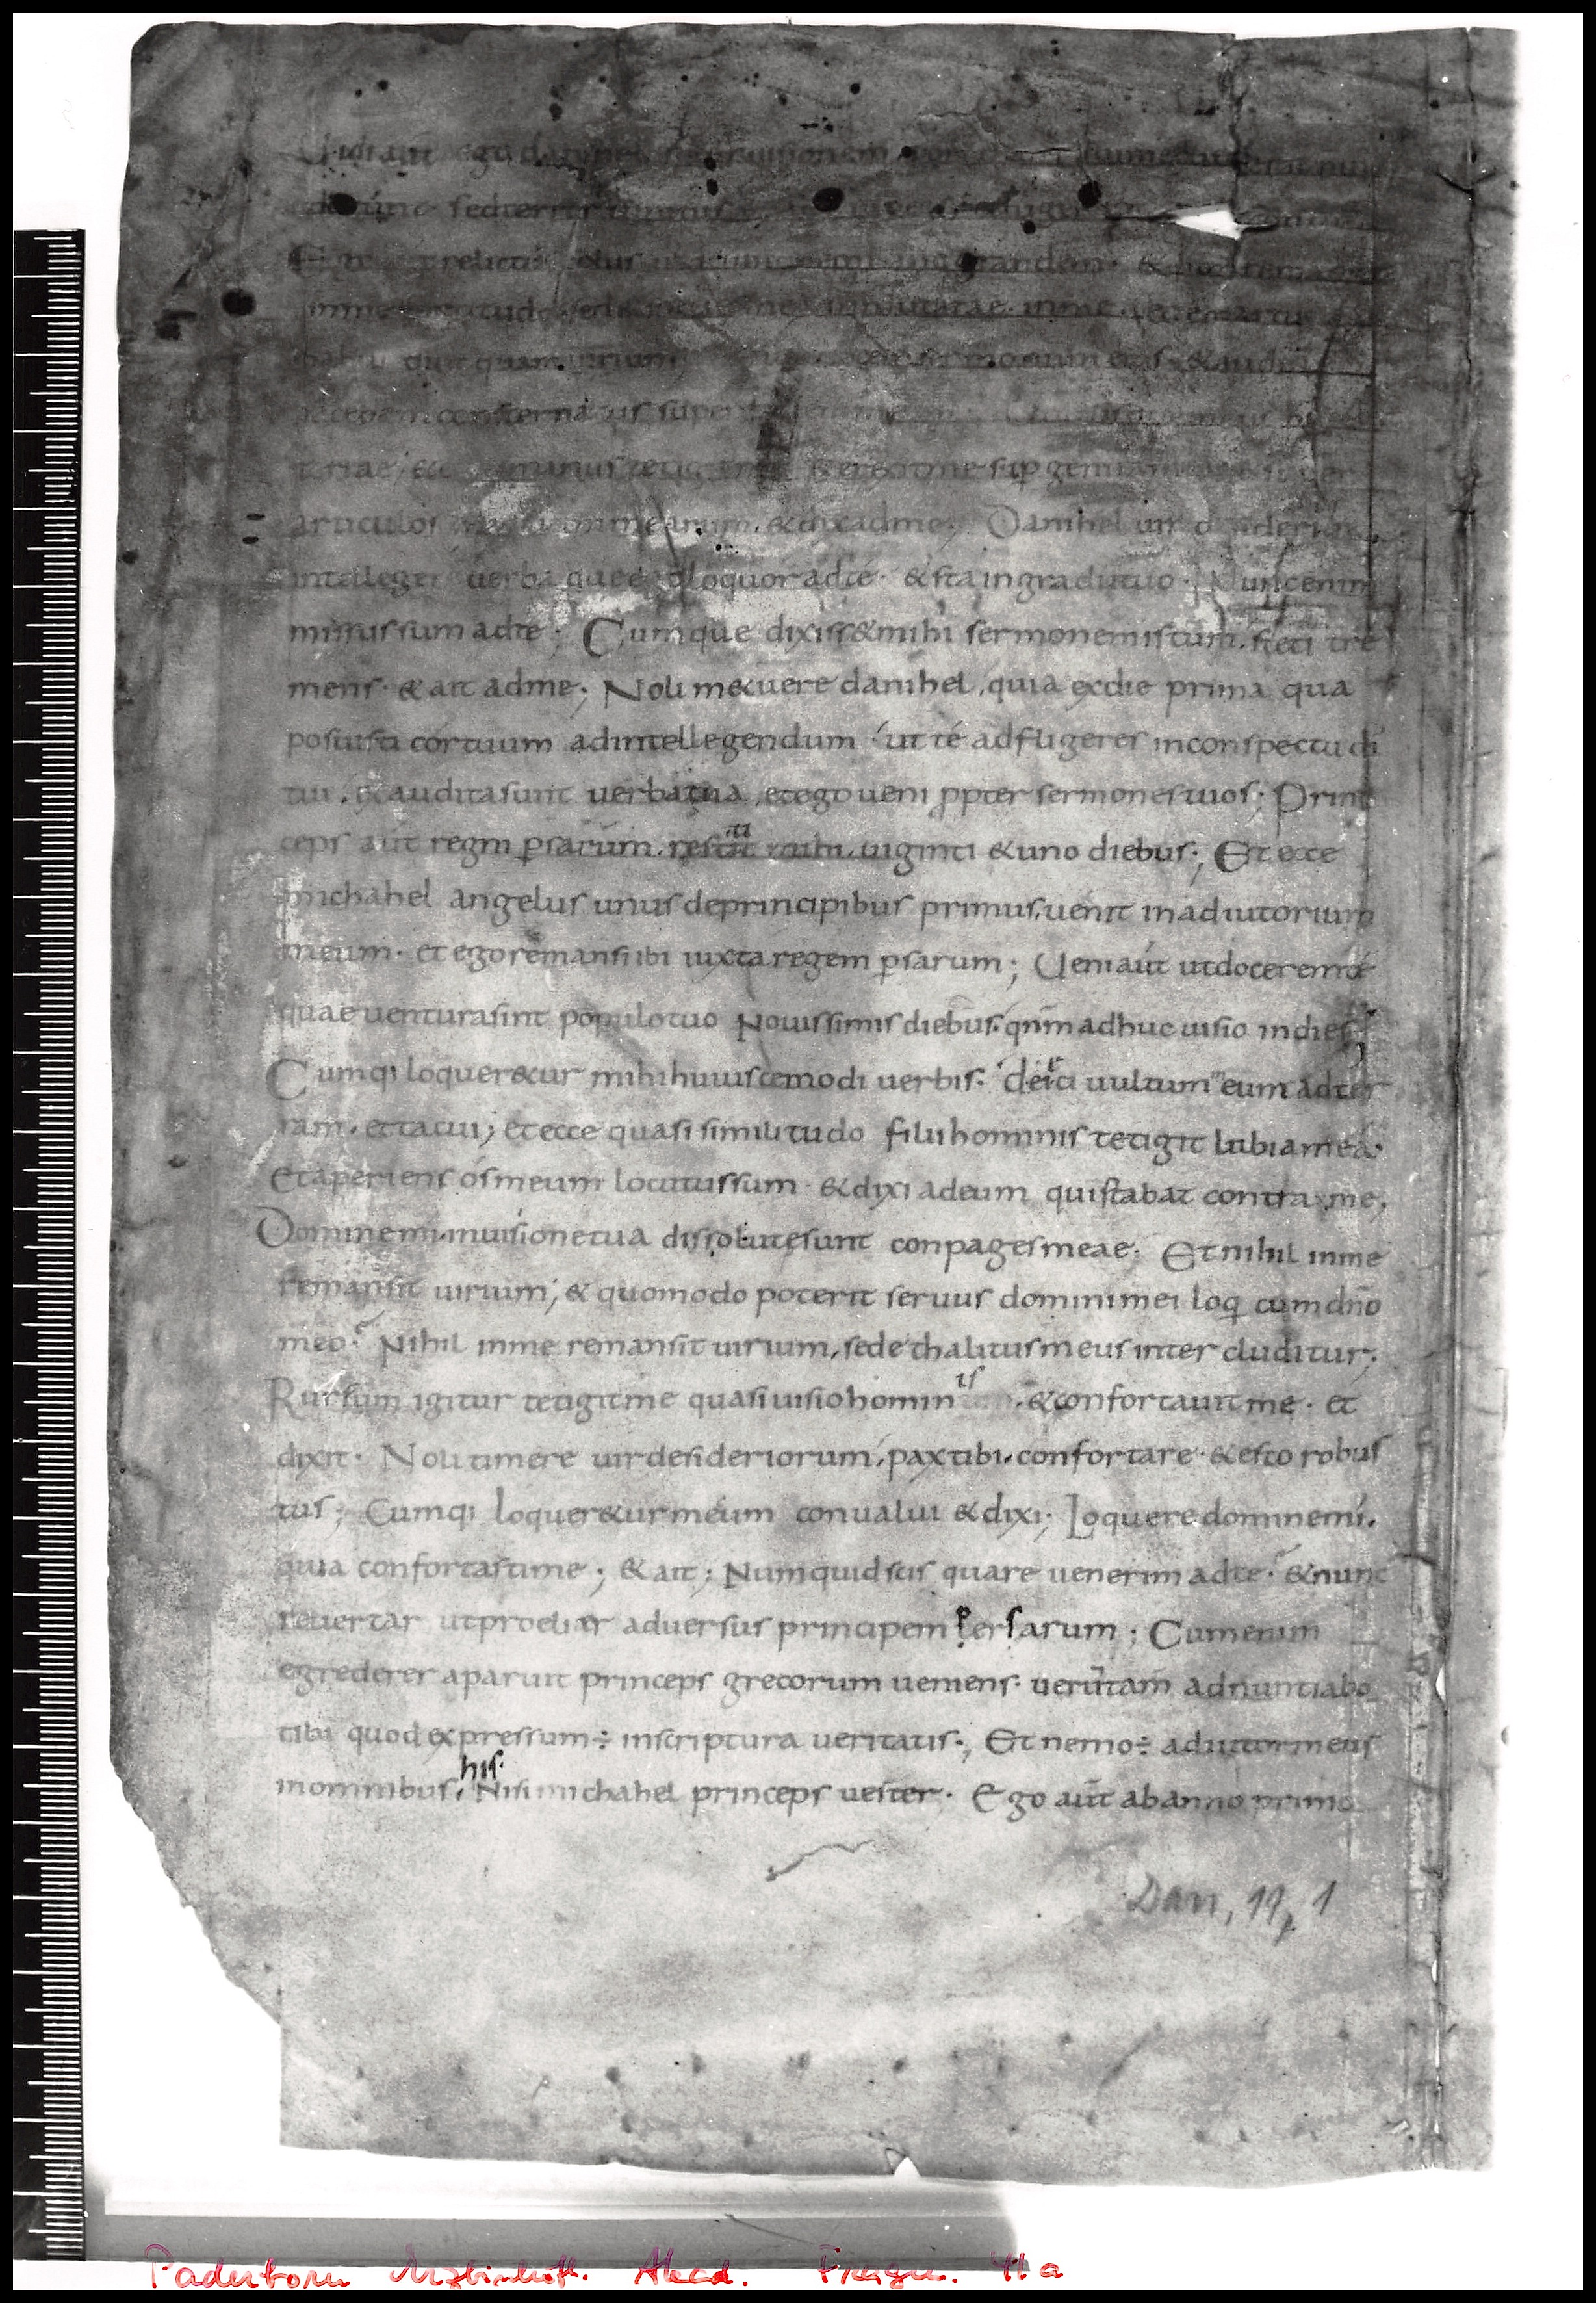 Uidi aut ego danihel
sed terror
Ego relictus solus grandem &
inme sed & inmutata inme
habui quicquam uirium sermonum eius & audiens
iacebam consternatus super
terrae; manus & erexit me sup genua
articulos manuum mearum. & dix adme; Danihel uir desiderior
intellege uerba quae ego loquor adte. & sta ingradu tuo. Nunc enim
missus sum adte; Cumque dixiss& mihi sermonem istum. steti tre
mens. & ait adme; Noli m&uere danihel, quia exdie prima qua
posuisti cor tuum adintellegendum ut té adfligeres inconspectu di
tui. & auditasunt uerba tua, etego ueni ppter sermones tuos; Prin
ceps aut regni psarum. restitit mihi uiginti & uno diebus; Et ecce
michahel angelus unus deprincipibus primus, uenit inadiutorium
meum. et ego remansi ibi iuxta regem psarum; Ueni aut utdocerem té
quae uentura sint populo tuo Nouissimis diebus. qnm adhuc uisio indies;
Cumqi loquer&ur mihi huiuscemodi uerbis. deieci uultum meum adter
ram. et tacui; et ecce quasi similitudo filii hominis tetigit labia mea.
Et aperiens ós meum locutus sum. & dixi adeum qui stabat contra me;
Domine mi. inuisione tua dissolute sunt conpages meae. Et nihil inme
remansit uirium; & quomodo poterit seruus domini mei loq cum dno
meo. Nihil inme remansit uirium, sed et halitus meus inter cluditur;
Rursum igitur tetigit me quasi uisio hominis. & confortauit me. et
dixit. Noli timere uir desideriorum, pax tibi. confortare. & esto robus
tus; Cumqi loquer&ur méum conualui & dixi; Loquere domine mi.
quia confortasti me; & ait; Numquid scis quare uenerim adte. & nunc
reuertar utproelier aduersus principem persarum; Cum enim
egrederer aparuit princeps grecorum ueniens. uerutam adnuntiabo
tibi quod expressum ÷ inscriptura ueritatis; Et nemo ÷ adiutor meus
his.
inomnibus. Nisi michahel princeps uester. Ego aut ab anno primo
Dan, 11, 1
Paderborn Erzbischöfl. Akad. Fragm. 11a